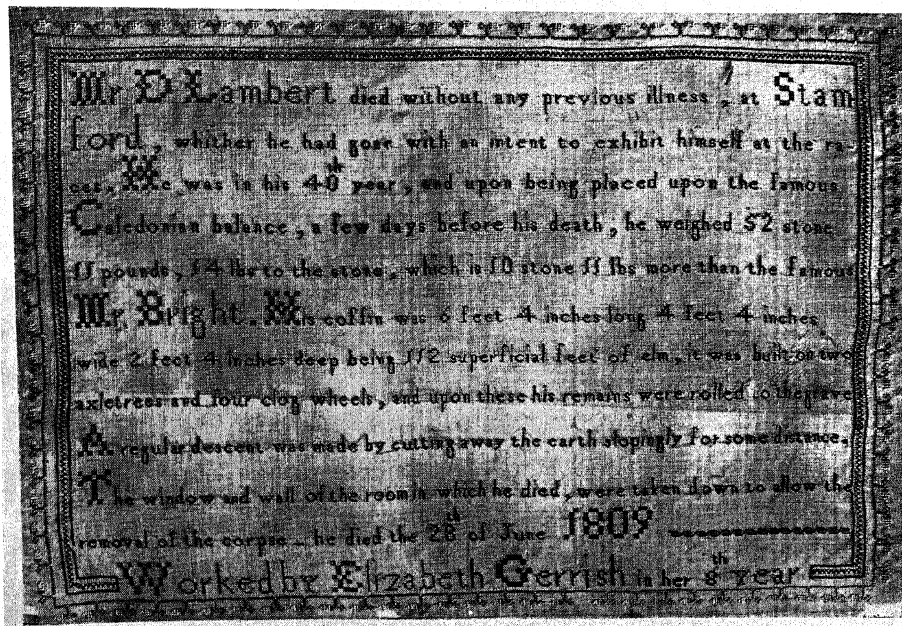 Mr D Lambert died without any previous illness, at Stam
ford, whither he had gone with an intent to exhibit himself at the ra-
ces. He was in his 40th year, and upon being placed upon the famous
Caledonian balance, a few days before his death, he weighed 52 stone
11 pounds, 14 lbs to the stone, which is 10 stone 11 lbs more than the famous
Mr Bright. His coffin was 6 feet 4 inches long 4 feet 4 inches
wide 2 feet 4 inches deep being 112 superficial feet of elm, it was built on two
axletrees and four clog wheels, and upon these his remains were rolled to the grave
A regular descent was made by cutting away the earth slopingly for some distance.
The window and wall of the room in which he died, were taken down to allow the
removal of the corpse - he died the 28th of June 1809
Worked by Elizabeth Gerrish in her 8th year